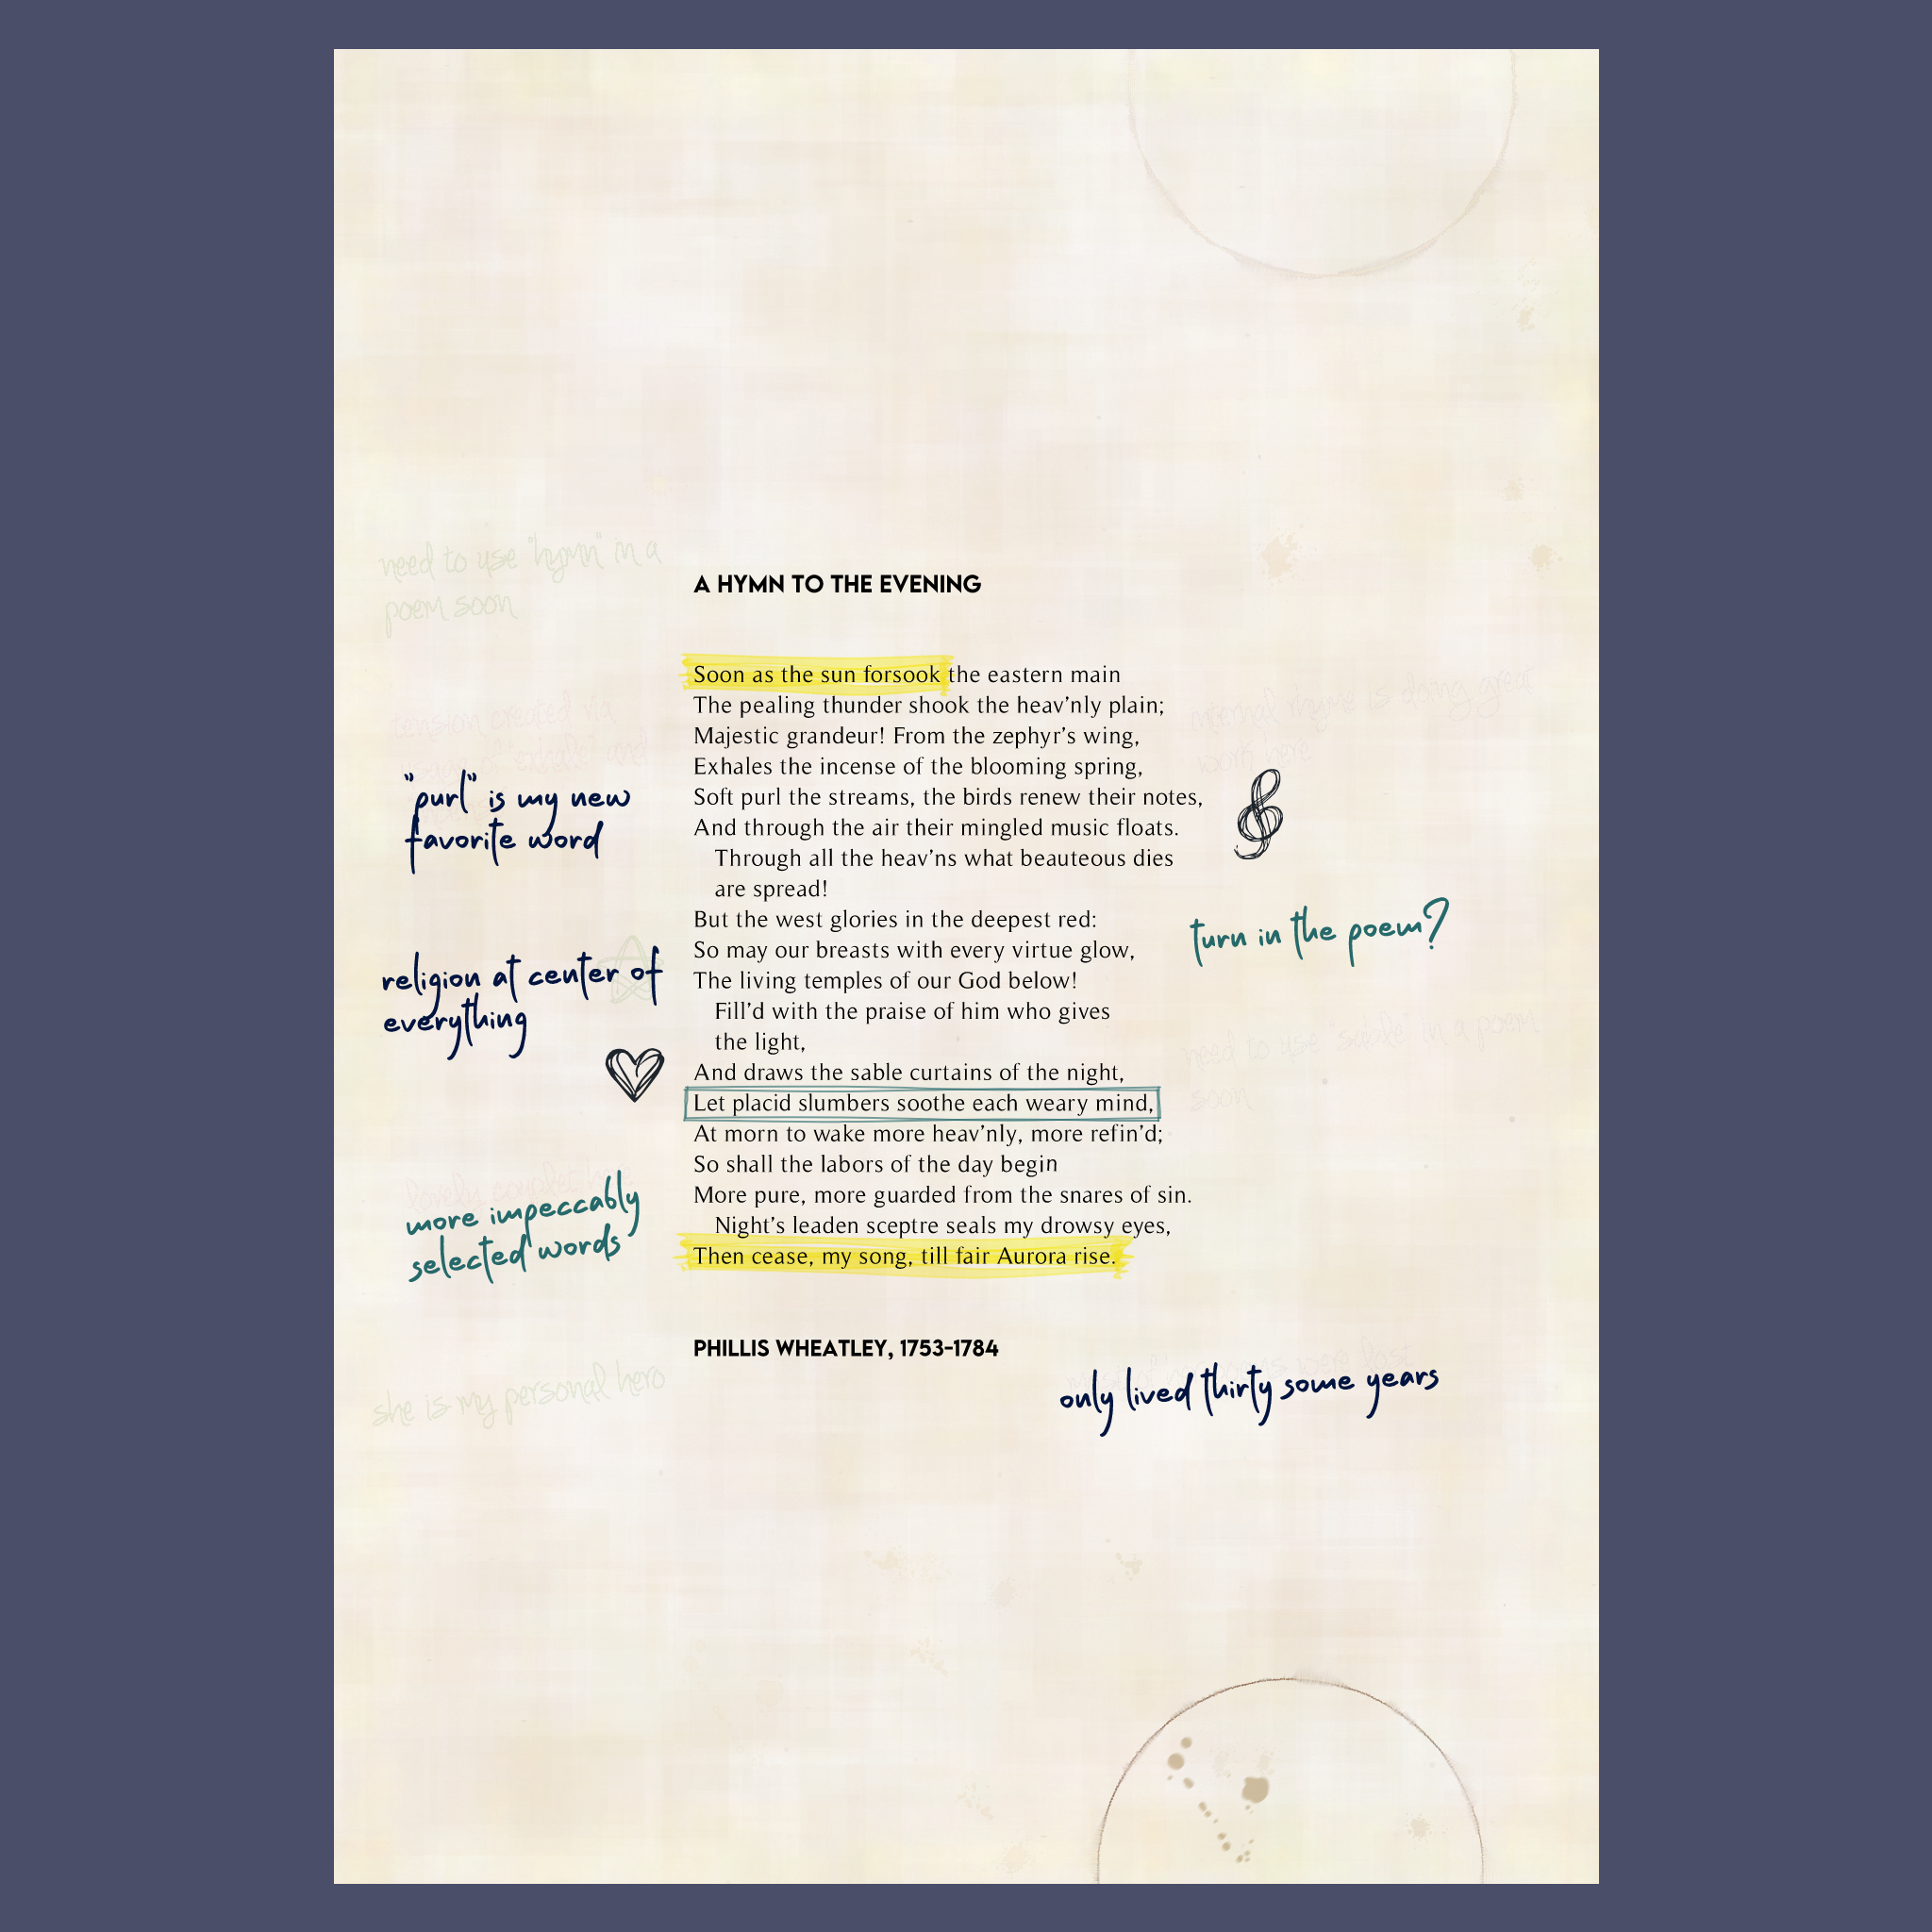 need to use "hymn" in a
poem soon
A HYMN TO THE EVENING
Soon as the sun forsook the eastern main
The pealing thunder shook the heav'nly plain;
Majestic grandeur! From the zephyr's wing,
Exhales the incense of the blooming spring,
Soft purl the streams, the birds renew their notes,
And through the air their mingled music floats.
Through all the heav'ns what beauteous dies
are spread!
But the west glories in the deepest red:
So may our breasts with every virtue glow,
The living temples of our God below!
Fill'd with the praise of him who gives
the light,
And draws the sable curtains of the night,
Let placid slumbers soothe each weary mind,
At morn to wake more heav'nly, more refin'd;
So shall the labors of the day begin
More pure, more guarded from the snares of sin.
Night's leaden sceptre seals my drowsy eyes,
Then cease, my song, till fair Aurora rise.
PHILLIS WHEATLEY, 1753-1784
tension created via
"purl" is my new
favorite word
religion at center of
everything
more impeccably
selected words
she is my personal hero
internal rhyme is doing great
work here
turn in the poem?
need to use "sable" in a poem
soon
only lived thirty some years